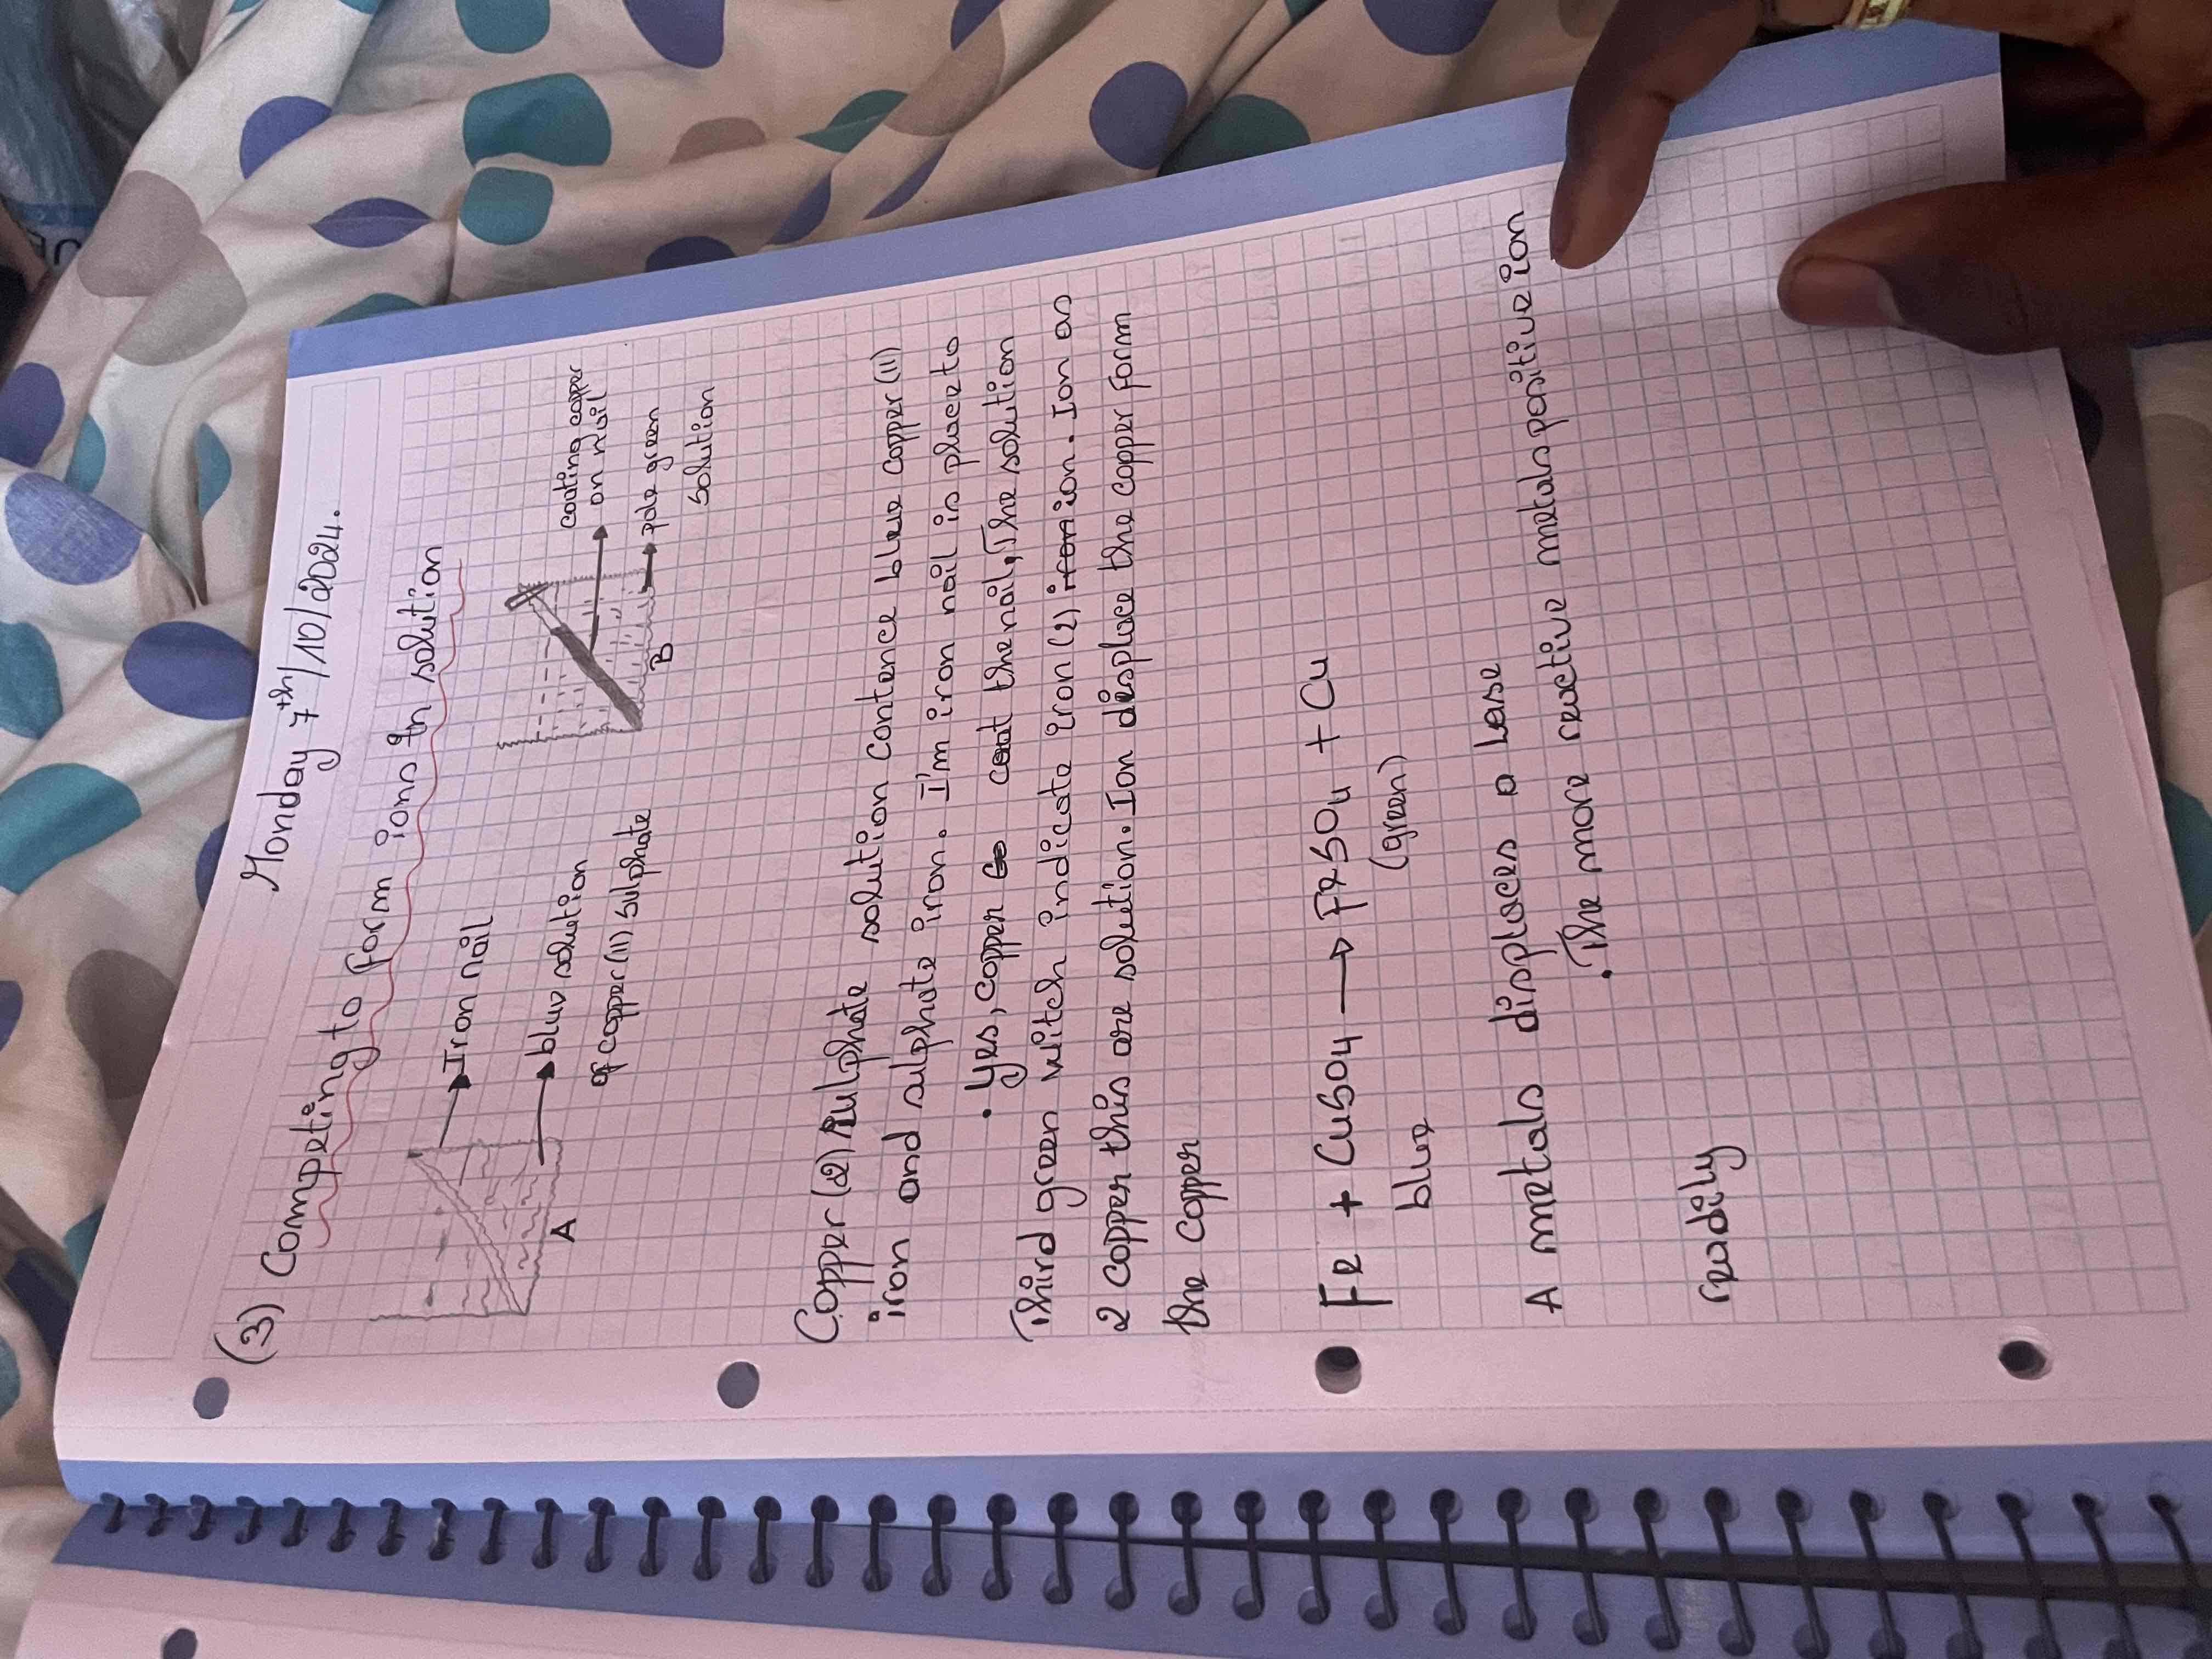 Monday 7th/10/2024.
(3) Competing to form ions In solution
Iron nail
bluv solution
of copper(11) sulphate
A
coating copper
on nail
pale green
solution
B
Copper (2) sulphate solution contence blue copper (11)
iron and sulphate iron. I'm iron nail is place to
. Yes, copper coat the nail, The solution
Third green witch indicate iron (2) ion. Ion as
2 copper this are solution. Ion displace the copper form
the copper
Fe + CuSO4 → FeSO4 + Cu
blue (green)
A metals displaces a Lese
. The more reactive metals positive ion
readily